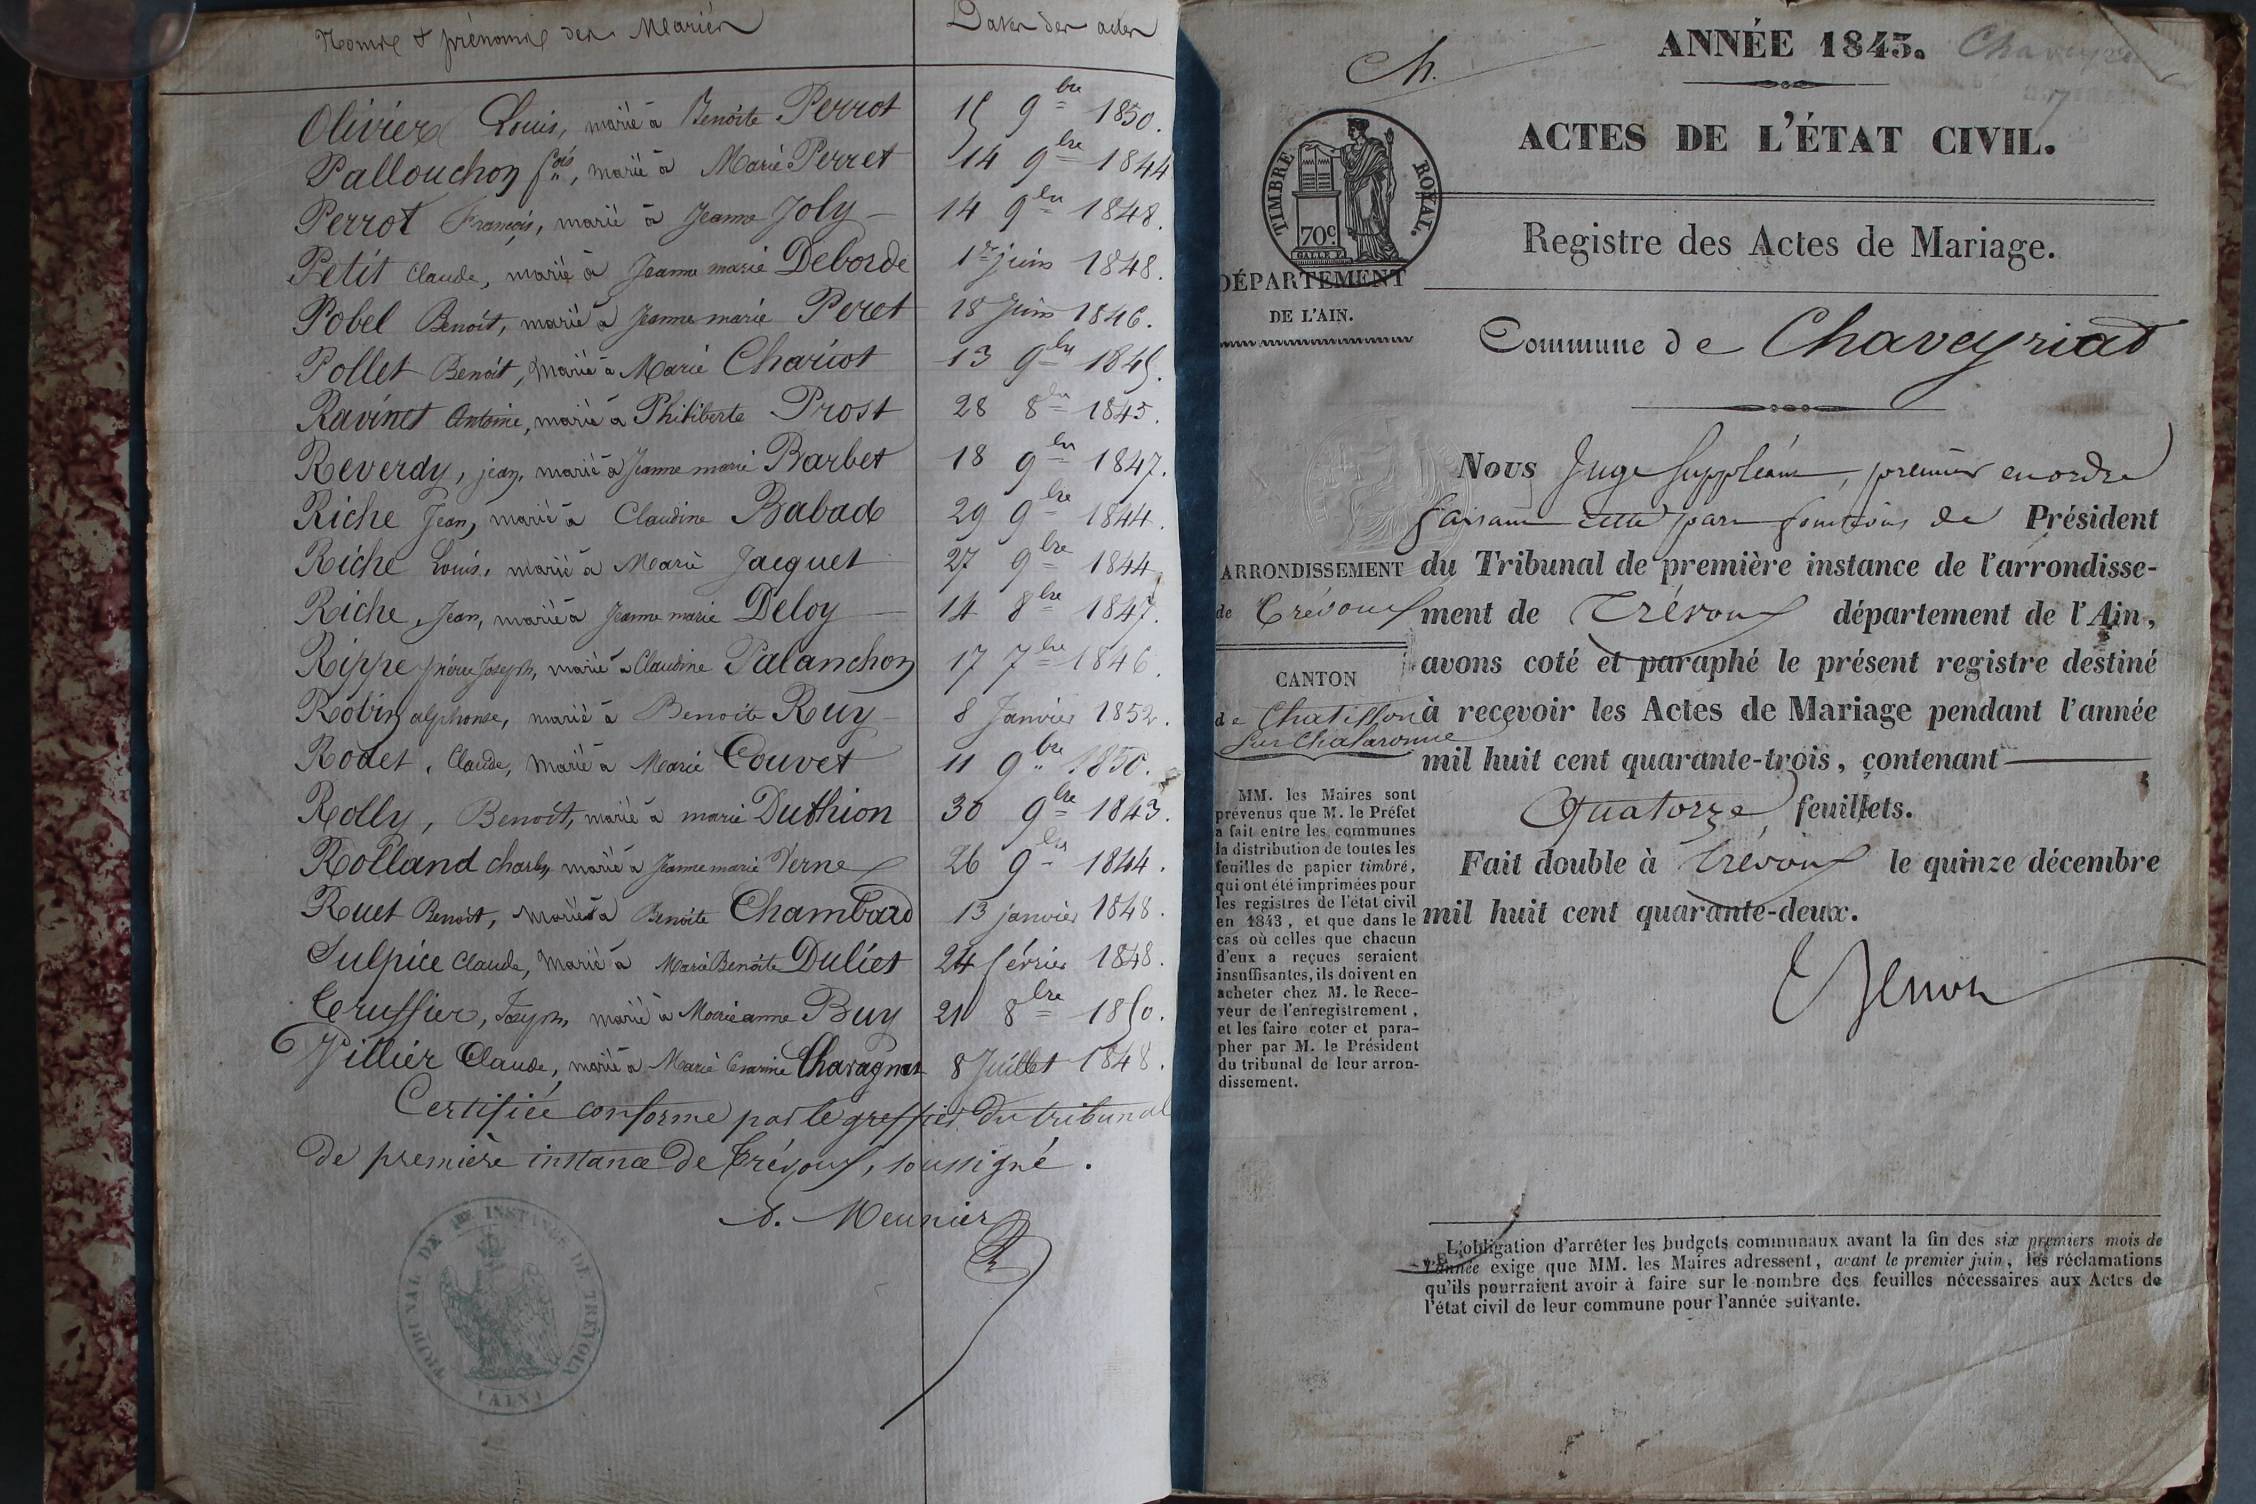 Noms & prénoms des Mariés Dates des actes
Olivier Louis, marié à Benoite Perrot 15 9bre 1850.
Pallouchon fois, marié à Marie Perret 14 9bre 1844
Perrot François, marié à Jeanne Joly 14 9bre 1848.
Petit Claude, marié à Jeanne marie Deborde 1er juin 1848.
Pobel Benoit, marié à Jeanne marie Peret 18 Juin 1846.
Pollet Benoit, marié à Marie Charvot 13 9bre 1845.
Ravinet Antoine, marié à Philiberte Prost 28 8bre 1845.
Reverdy, jean, marié à Jeanne marie Barbet 18 9bre 1847.
Riche Jean, marié à Claudine Babad 29 9bre 1844.
Riche Louis, marié à Marie Jacquet 27 9bre 1844
Riche, Jean, marié à Jeanne marie Deloy 14 8bre 1847.
Rippe pierre Joseph, marié à Claudine Palanchon 17 7bre 1846.
Robin alphonse, marié à Benoite Ruy 8 Janvier 1852.
Rodet, Claude, marié à Marie Couvet 11 9bre 1850.
Rolly, Benoît, marié à marie Duthion 30 9bre 1843.
Rolland charles, marié à Jeanne marie Verne 26 9bre 1844.
Ruet Benoit, marié à Benoite Chambard 13 janvier 1848.
Sulpice Claude, marié à Marie Benoite Duliet 24 février 1848.
Teruffier, Joseph, marié à Marie anne Buy 21 8bre 1850.
Villier Claude, marié à Marie 8 Juillet 1848.
Certifiée conforme par le greffier du tribunal
de première instance de Trévoux, soussigné.
Meunier
TRIBUNAL DE 1RE INSTANCE DE TRÉVOUX
(AIN)
Ch.
ANNÉE 1843.
ACTES DE L'ÉTAT CIVIL.
TIMBRE ROYAL.
70c.
Registre des Actes de Mariage.
DÉPARTEMENT
DE L'AIN.
Commune de Chaveyriat
Nous Juge Suppléant, premier en ordre
faisant cette part fonctions de Président
ARRONDISSEMENT
de Trévoux
CANTON
de Chatillon
sur Chalaronne
du Tribunal de première instance de l'arrondisse-
ment de Trévoux département de l'Ain,
avons coté et paraphé le présent registre destiné
à recevoir les Actes de Mariage pendant l'année
mil huit cent quarante-trois, contenant
Quatorze feuillets.
Fait double à Trévoux le quinze décembre
mil huit cent quarante-deux.
MM. les Maires sont
prévenus que M. le Préfet
a fait entre les communes
la distribution de toutes les
feuilles de papier timbré,
qui ont été imprimées pour
les registres de l'état civil
en 1843, et que dans le
cas où celles que chacun
d'eux a reçues seraient
insuffisantes, ils doivent en
acheter chez M. le Rece-
veur de l'enregistrement,
et les faire coter et para-
pher par M. le Président
du tribunal de leur arron-
dissement.
L'obligation d'arrêter les budgets communaux avant la fin des six premiers mois de
l'année exige que MM. les Maires adressent, avant le premier juin, les réclamations
qu'ils pourraient avoir à faire sur le nombre des feuilles nécessaires aux Actes de
l'état civil de leur commune pour l'année suivante.